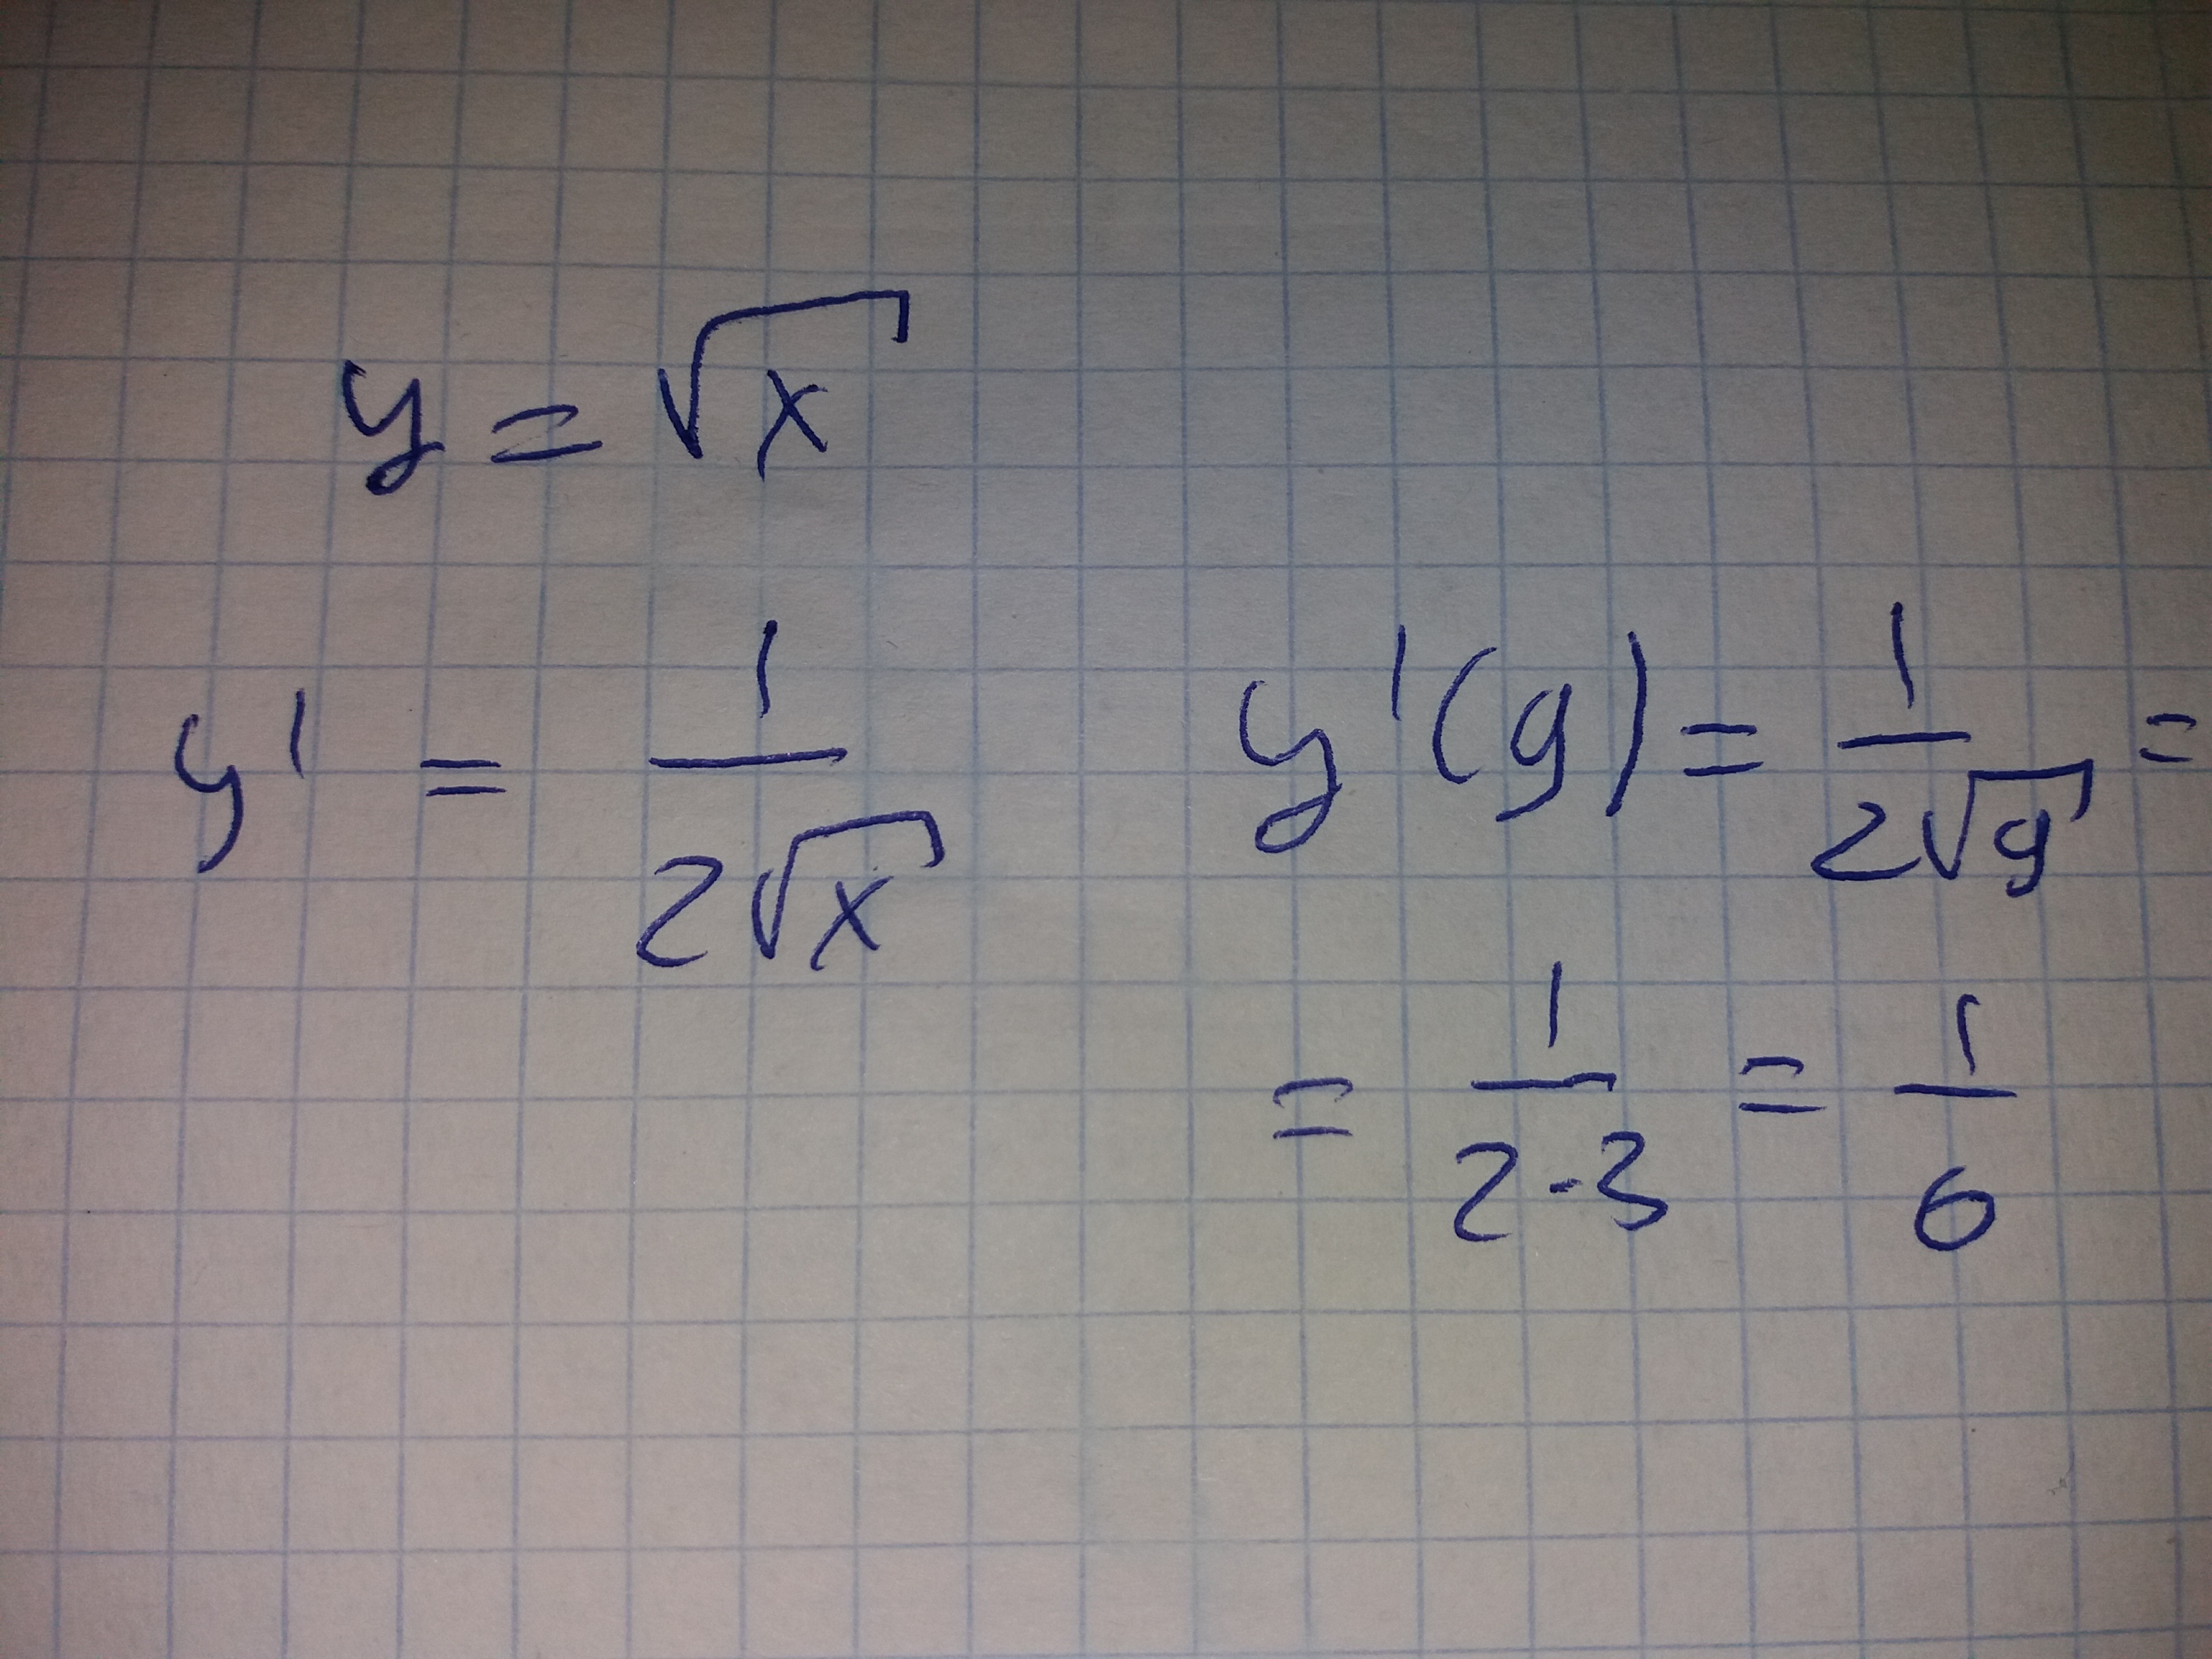 y = √x
y' = 1/(2√x)
y'(9) = 1/(2√9) =
= 1/(2·3) = 1/6